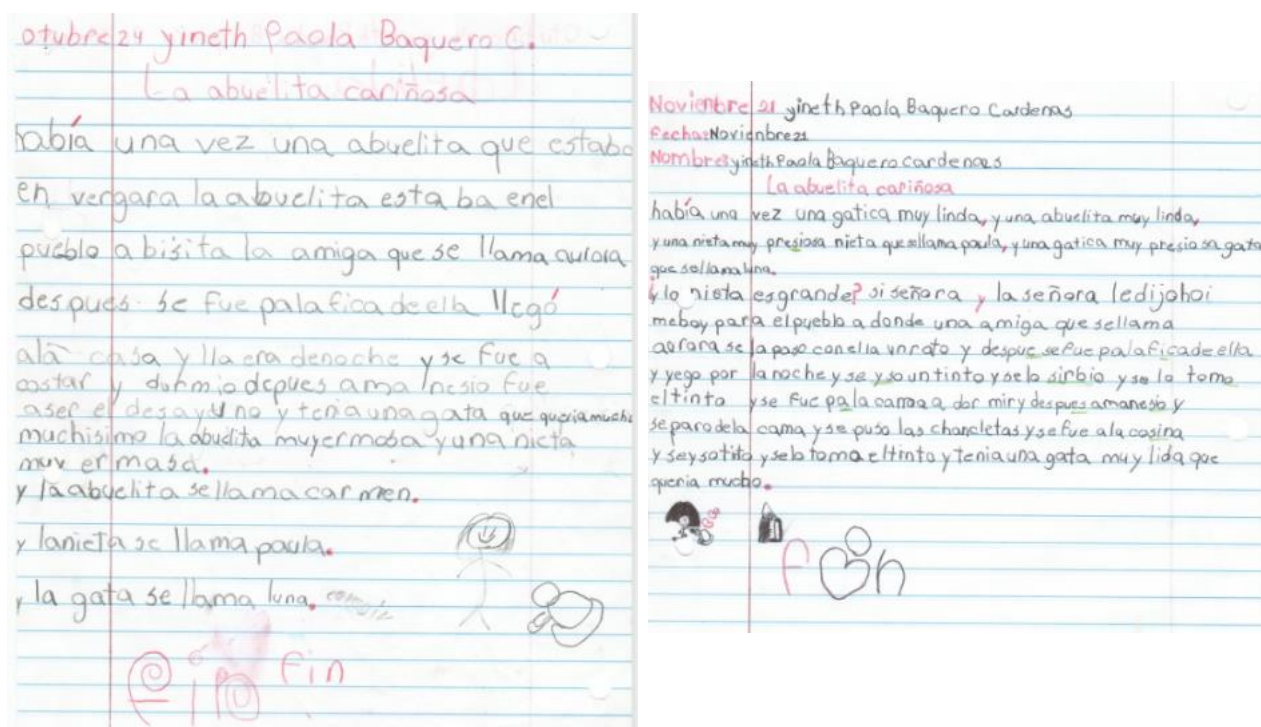 otubre 24 yineth Paola Baquero C.
La abuelita cariñosa
había una vez una abuelita que estaba
en vergara la abuelita esta ba enel
pueblo a bisita la amiga que se llama aurora
des pues se fue pala fica de ella llegó
alà casa y lla era denoche y se fue a
costar y durmio depues ama nesio fue
aser el desayuno y tenia una gata que queria mucho
muchisimo la abuelita muy ermosa y una nieta
muy er masa.
y la abuelita sellama car men.
y lanieta se llama paula.
y la gata se llama luna.
fin fin
Novienbre 21 yineth Paola Baquero Cardenas
Fecha: Novienbre 21
Nombres yineth Paola Baquero cardenas
La abuelita cariñosa
había una vez una gatica muy linda, y una abuelita muy linda,
y una nieta muy presiosa nieta que sellama paula, y una gatica muy presio sa gata
que sellama luna.
¿y la nieta es grande? si señora, la señora ledijo hoi
meboy para elpueblo a donde una amiga que sellama
aorora se la paso con ella un rato y despue sefue pala fica de ella
y yego por la noche y se y so un tinto y selo sirbio y se lo tomo
eltinto y se fue pa la cama a dor mir y despues amanesio y
se paro dela cama y se puso las chancletas y se fue ala cosina
y sey so tito y selo tomo eltinto y tenia una gata muy lida que
queria mucho.
fin